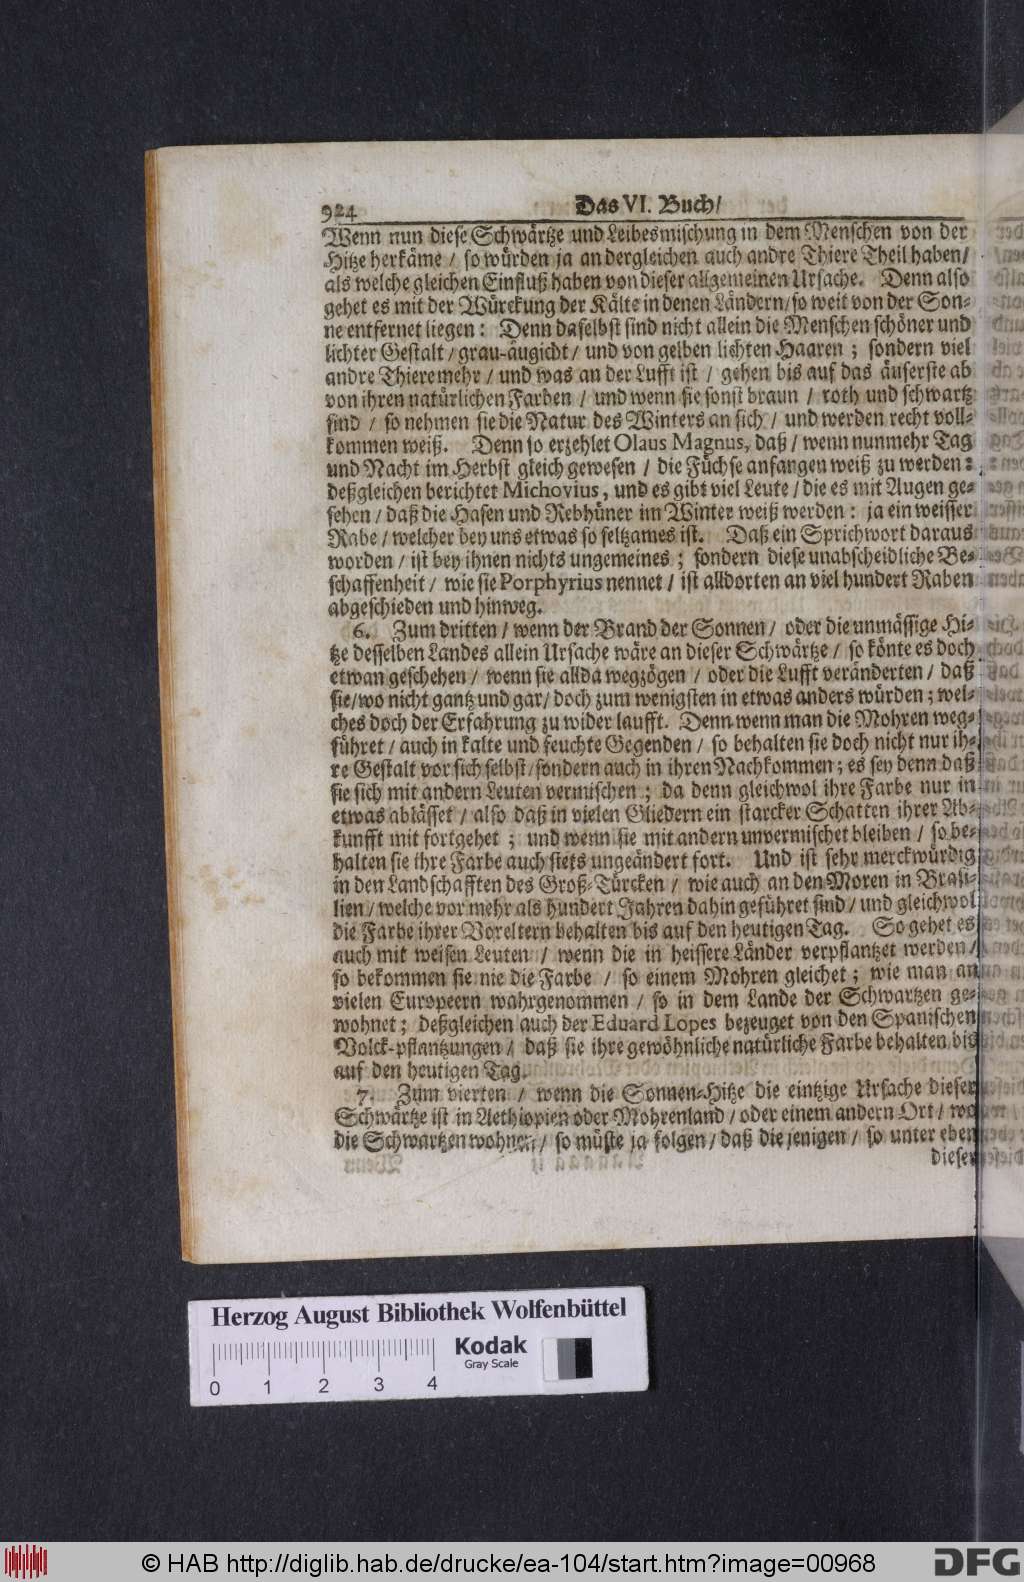 924
Das VI. Buch/
Wenn nun diese Schwärtze und Leibesmischung in dem Menschen von der
Hitze herkäme / so würden ja an dergleichen auch andre Thiere Theil haben/
als welche gleichen Einfluß haben von dieser allgemeinen Ursache. Denn also
gehet es mit der Würckung der Kälte in denen Ländern/so weit von der Son-
ne entfernet liegen: Denn daselbst sind nicht allein die Menschen schöner und
lichter Gestalt / grau-äugicht / und von gelben lichten Haaren ; sondern viel
andre Thiere mehr / und was an der Lufft ist / gehen bis auf das äuserste ab
von ihren natürlichen Farben / und wenn sie sonst braun / roth und schwartz
sind / so nehmen sie die Natur des Winters an sich / und werden recht voll-
kommen weiß. Denn so erzehlet Olaus Magnus, daß / wenn nunmehr Tag
und Nacht im Herbst gleich gewesen / die Füchse anfangen weiß zu werden:
deßgleichen berichtet Michovius, und es gibt viel Leute / die es mit Augen ge-
sehen / daß die Hasen und Rebhüner im Winter weiß werden: ja ein weisser
Rabe / welcher bey uns etwas so seltzames ist. Daß ein Sprichwort daraus
worden / ist bey ihnen nichts ungemeines ; sondern diese unabscheidliche Be-
schaffenheit / wie sie Porphyrius nennet / ist alldorten an viel hundert Raben
abgeschieden und hinweg.
6. Zum dritten / wenn der Brand der Sonnen / oder die unmässige Hi-
tze desselben Landes allein Ursache wäre an dieser Schwärtze / so könte es doch
etwan geschehen / wenn sie allda wegzögen / oder die Lufft veränderten / daß
sie/wo nicht gantz und gar/ doch zum wenigsten in etwas anders würden; wel-
ches doch der Erfahrung zu wider laufft. Denn wenn man die Mohren weg-
führet / auch in kalte und feuchte Gegenden / so behalten sie doch nicht nur ih-
re Gestalt vor sich selbst/sondern auch in ihren Nachkommen; es sey denn daß
sie sich mit andern Leuten vermischen ; da denn gleichwol ihre Farbe nur in
etwas ablässet / also daß in vielen Gliedern ein starcker Schatten ihrer Ab-
kunfft mit fortgehet ; und wenn sie mit andern unvermischet bleiben / so be-
halten sie ihre Farbe auch stets ungeändert fort. Und ist sehr merckwürdig
in den Landschafften des Groß-Türcken / wie auch an den Moren in Brasi-
lien / welche vor mehr als hundert Jahren dahin geführet sind / und gleichwol
die Farbe ihrer Voreltern behalten bis auf den heutigen Tag. So gehet es
auch mit weisen Leuten / wenn die in heissere Länder verpflantzet werden /
so bekommen sie nie die Farbe / so einem Mohren gleichet ; wie man an
vielen Europeern wahrgenommen / so in dem Lande der Schwartzen ge-
wohnet ; deßgleichen auch der Eduard Lopes bezeuget von den Spanischen
Volck-pflantzungen / daß sie ihre gewöhnliche natürliche Farbe behalten bis
auf den heutigen Tag.
7. Zum vierten / wenn die Sonnen-Hitze die eintzige Ursache dieser
Schwärtze ist in Aethiopien oder Mohrenland / oder einem andern Ort / wo
die Schwartzen wohnen / so müste ja folgen / daß die jenigen / so unter eben
dieser
Herzog August Bibliothek Wolfenbüttel
Kodak
Gray Scale
0 1 2 3 4
© HAB http://diglib.hab.de/drucke/ea-104/start.htm?image=00968
DFG